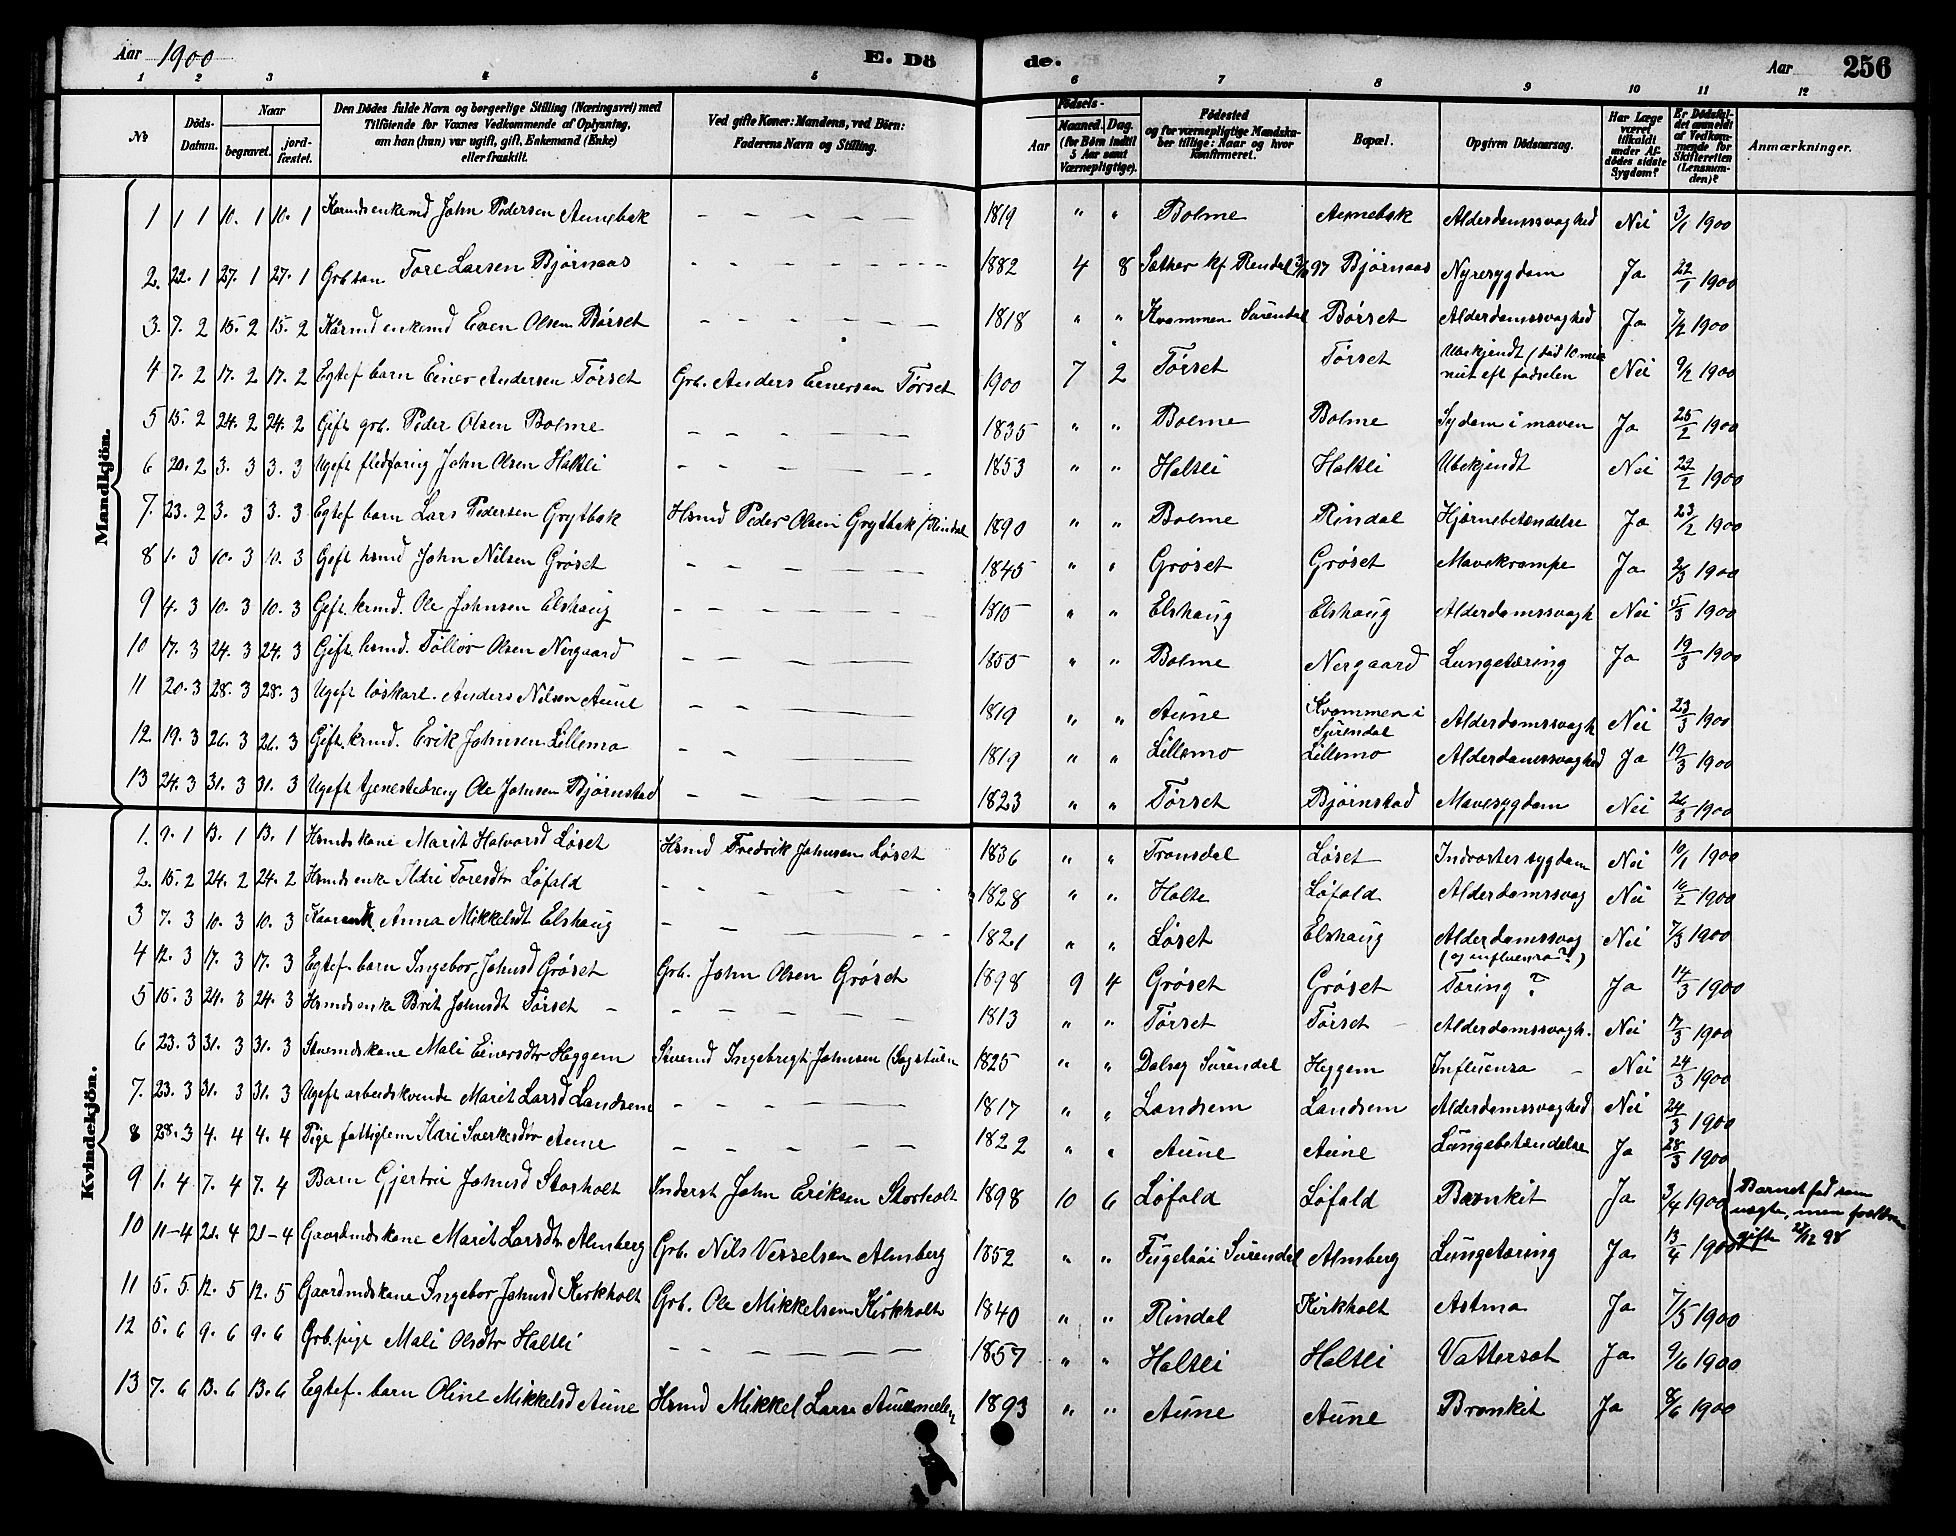 Aar 1900 E. Dö de. Aar 256
1 2 3 4 5 6 7 8 9 10 11 12
№ Döds-Datum. Naar begravet. jordfæstet. Den Dödes fulde Navn og borgerlige Stilling (Næringsvei) med Tilföiende for Voxnes Vedkommende af Oplysning, om han (hun) var ugift, gift, Enkemand (Enke) eller fraskilt. Ved gifte Koner: Mandens, ved Börn: Faderens Navn og Stilling. Födsels- Aar Maaned. Dag. (for Börn indtil 5 Aar samt Værnepligtige). Födested og for værnepligtige Mandskaber tillige: Naar og hvor konfirmeret. Bopæl. Opgiven Dödsaarsag. Har Læge været tilkaldt under Afdödes sidste Sygdom? Er Dödsfaldet anmeldt af Vedkommende for Skifteretten (Lensmanden)? Anmærkninger.
Mandkjön.
1 1 1 10. 1 10. 1 Kaarmdsenkemd John Pedersen Aunebak – – – – – 1819 " " Bolme Aunebak Alderdomssvaghed Nei 3/1 1900
2. 22. 1 27. 1 27. 1 Grbsøn Tore Larsen Bjørnaas – – – – – 1882 4 8 Sæther kf Rendal 97 Bjørnaas Nyresygdom Ja 22/1 1900
3. 7. 2 15. 2 15. 2 Kaarmd enkemd Even Olsen Børset – – – – – 1818 " " Kvammen Surendal Børset Alderdomssvaghed Ja 7/2 1900
4 7. 2 17. 2 17. 2 Egtef barn Einer Andersen Tørset Grb. Anders Einersen Tørset 1900 7 2 Tørset Tørset Ubekjendt (død 10 minut eft fødselen Nei 9/2 1900
5 15. 2 24. 2 24. 2 Gift grb. Peder Olsen Bolme – – – – – 1835 " " Bolme Bolme Sydom i maven Ja 25/2 1900
6 20. 2 3. 3 3. 3 Ugift fledføring John Olsen Haltli – – – – – 1853 " " Haltli Haltli Ubekjendt Nei 22/2 1900
7. 23. 2 3. 3 3. 3 Egtef barn Lars Pedersen Grytbak Hsmd Peder Olsen Grytbak (Rindal 1890 " " Bolme Rindal Hjernebetændelse Ja 23/2 1900
8 1. 3 10. 3 10. 3 Gift hsmd John Nilsen Grøset – – – – – 1845 " " Grøset Grøset Mavekrampe Ja 2/3 1900
9 4. 3 10. 3 10. 3 Gift krmd. Ole Johnsen Elshaug – – – – – 1815 " " Elshaug Elshaug Alderdomssvagh Nei 5/3 1900
10 17. 3 24. 3 24. 3 Gift hsmd. Tølløv Olsen Nergaard – – – – – 1855 " " Bolme Nergaard Lungetæring Ja 19/3 1900
11 20. 3 28. 3 28. 3 Ugift løskarl. Anders Nilsen Aune – – – – – 1819 " " Aune Kvammen i Surendal Alderdomssvagh Nei 23/3 1900
12 19. 3 26. 3 26. 3 Gift krmd. Erik Johnsen Lillemo – – – – – 1819 " " Lillemo Lillemo Alderdomssvaghed Ja 19/3 1900
13 24. 3 31. 3 31. 3 Ugift tjenestedreng Ole Johnsen Bjørnstad – – – – – 1823 " " Tørset Bjørnstad Mavesygdom Nei 26/3 1900
Kvindekjön.
1. 9. 1 13. 1 13. 1 Hsmdskone Marit Halvorsd Løset Hsmd Fredrik Johnsen Løset 1836 " " Tronsdal Løset Indvortes sygdom Nei 10/1 1900
2. 15. 2 24. 2 24. 2 Hsmds enke Ildri Toresdtr Løfald – – – – – 1828 " " Holte Løfald Alderdomssvag Nei 16/2 1900
3 7. 3 10. 3 10. 3 Kaarenk Anna Mikkelsdt Elshaug – – – – – 1821 " " Løset Elshaug Alderdomssvag (og influensa?) Nei 7/3 1900
4 12. 3 17. 3 17. 3 Egtef. barn Ingebor Johnsd Grøset Grb. John Olsen Grøset 1898 9 4 Grøset Grøset Tæring? Ja 14/3 1900
5 15. 3 24. 3 24. 3 Hsmds enke Brit Johnsdt Tørset – – – – – 1813 " " Tørset Tørset – Alderdomssvagh. Nei 17/3 1900
6 23. 3 31. 3 31. 3 Stuemdskone Mali Einersdtr Heggem Stuemd Ingebrigt Johnsen (Sagstuen 1825 " " Dalseg Surendal Heggem Influensa – Nei 24/3 1900
7. 23. 3 31. 3 31. 3 Ugift arbeidskvinde Marit Larsd Landsem – – – – – 1817 " " Landsem Landsem Alderdomssvaghed Nei 24/3 1900
8 28. 3 4. 4 4. 4 Pige fattiglem Kari Sverkesdtr Aune – – – – – 1822 " " Aune Aune Lungebetændelse Ja 28/3 1900
9 1. 4 7. 4 7. 4 Barn Gjertru Johnsd Storholt Inderst John Eriksen Storholt 1898 10 6 Løfald Løfald Bronkit Ja 3/4 1900 Barnet fød som uægte, men forældrene gifte 21/12 98
10 11-4 21. 4 21-4 Gaardmdskone Marit Larsdtr Almberg Grb. Nils Vesselsen Almberg 1852 " " Fugelsøi Surendal Almberg Lungetæring Ja 13/4 1900
11 5. 5 12. 5 12. 5 Gaardmdskone Ingebor Johnsd Kirkholt Grb. Ole Mikkelsen Kirkholt 1840 " " Rindal Kirkholt Astma Ja 7/5 1900
12 5. 6 9. 6 9. 6 Grb. pige Mali Olsdtr Haltli – – – – – 1857 " " Haltli Haltli Vattersot Ja 9/6 1900
13 7. 6 13. 6 13. 6 Egtef. barn Oline Mikkelsd Aune Hsmd Mikkel Larse Aunemelen 1893 " " Aune Aune Bronkit Ja 8/6 1900